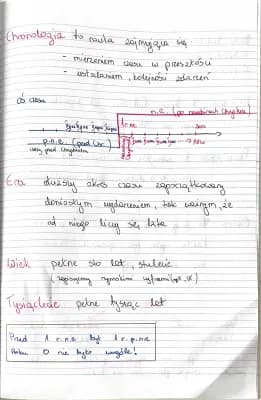 Chronologia to nauka zajmująca się
- mierzeniem czasu w przeszłości
- ustalaniem, kolejności zdarzeń
oś czasu
n.e. (po narodzinach Chrystusa)
1 r.n.e.
p.n.e. (przed Chr.)
czasy przed Chrystusem
Era dłuższy okres czasu zapoczątkowany
doniosłym wydarzeniem, tak ważnym, że
od niego liczy się lata
Wiek pełne sto lat, stulecie
(zapisujemy rzymskimi cyframi
Tysiąclecie pełne tysiąc lat
Przed 1 r.n.e był 1 r.p.n.e
Roku 0 nie było wogóle!